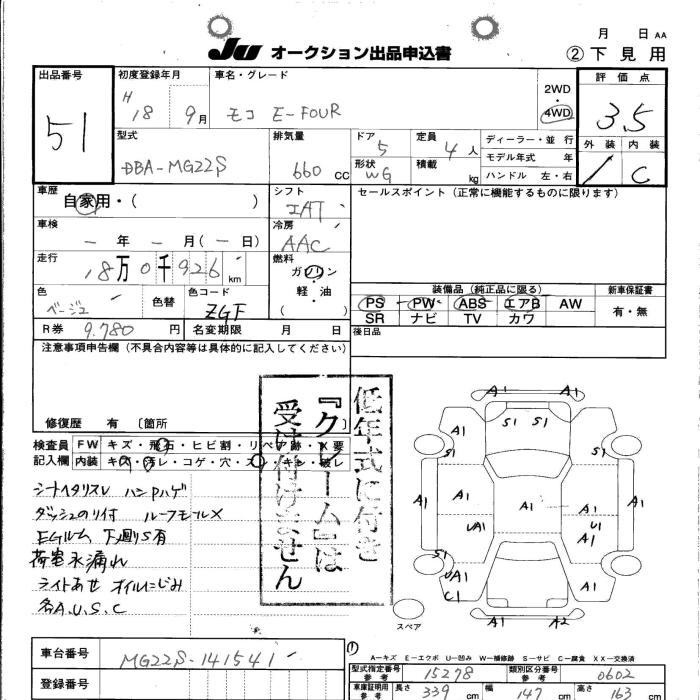 月 日 AA
JU オークション出品申込書 ②下見用
出品番号 51
初度登録年月 H 18 9月
車名・グレード モコ E-FOUR
2WD
4WD
評価点 3.5
外装 内装 C
型式 DBA-MG22S
排気量 660 CC
ドア 5
形状 WG
定員 4 人
積載 kg
ディーラー・並行
モデル年式 年
ハンドル 左・右
車歴 自家用・( )
シフト IAT
セールスポイント(正常に機能するものに限ります)
車検 - 年 - 月(-日)
冷房 AAC
走行 18万0千926 km
燃料 ガソリン
軽・油
( )
色 ベージュ
色替
色コード ZGF
装備品(純正品に限る)
PS PW ABS エアB AW
SR ナビ TV カワ
新車保証書
有・無
R券 9.780 円 名変期限 月 日
後日品
注意事項申告欄(不具合内容等は具体的に記入してください)
修復歴 有 [箇所
低年式に付き
『クレーム』は
受け付けません
検査員 FW キズ・飛石・ヒビ割・リペア跡・X要
記入欄 内装 キズ・汚レ・コゲ・穴・スレ・キレ・破レ
シートヘタリスレ ハンドルハゲ
ダッシュのり付 ルーフモールX
EGルーム 下廻りS有
荷室水漏れ
ライトあせ オイルにじみ
各A.U.S.C
A1 A1
A1 S1 S1 A1
S1 S1
A1 A1 A1 A1 A1
UA1 U1
A1
S1 S1
UA1 A1
C1
A1 A2
スペア
車台番号 MG22S-141541
登録番号
①
A=キズ E=エクボ U=凹み W=補修跡 S=サビ C=腐食 XX=交換済
型式指定番号 参考 15278
類別区分番号 参考 0602
車庫証明 参考 長さ 339 cm 幅 147 cm 高さ 163 cm